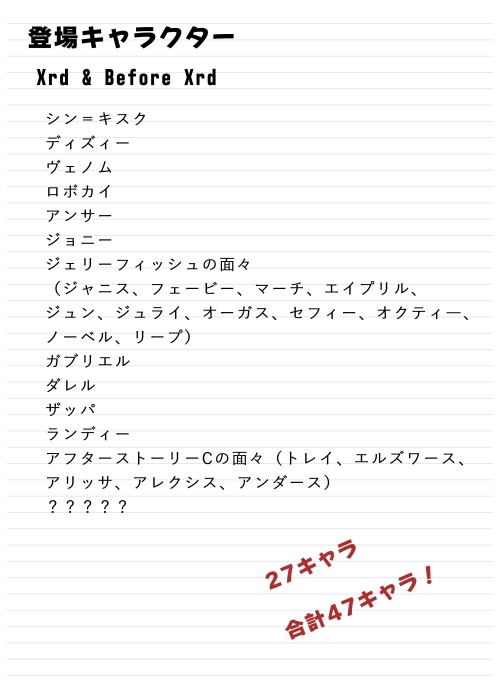 登場キャラクター
Xrd & Before Xrd
シン＝キスク
ディズィー
ヴェノム
ロボカイ
アンサー
ジョニー
ジェリーフィッシュの面々
（ジャニス、フェービー、マーチ、エイプリル、
ジュン、ジュライ、オーガス、セフィー、オクティー、
ノーベル、リープ）
ガブリエル
ダレル
ザッパ
ランディー
アフターストーリーCの面々（トレイ、エルズワース、
アリッサ、アレクシス、アンダース）
？？？？？
27キャラ
合計47キャラ！